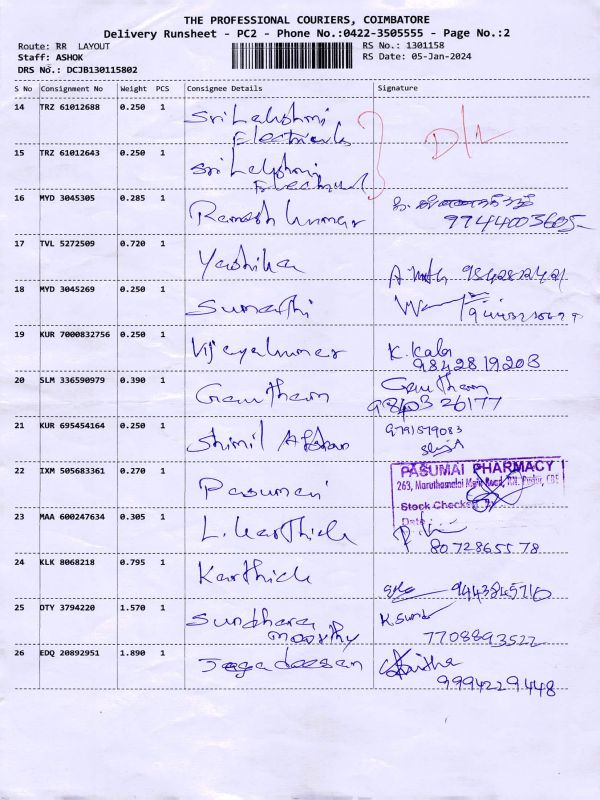 THE PROFESSIONAL COURIERS, COIMBATORE
Delivery Runsheet - PC2 - Phone No.:0422-3505555 - Page No.:2
Route: RR LAYOUT
RS No.: 1301158
Staff: ASHOK
RS Date: 05-Jan-2024
DRS No.: DCJB130115802
S No Consignment No Weight PCS Consignee Details Signature
14 TRZ 61012688 0.250 1 Sri Lakshmi
Electricals
D/L
15 TRZ 61012643 0.250 1 Sri Lakshmi
Electrical
16 MYD 3045305 0.285 1 Ramesh kumar
9744003605
17 TVL 5272509 0.720 1 Yashika
18 MYD 3045269 0.250 1 Sumathi
19 KUR 7000832756 0.250 1 Vijayakumar K. Kala
9842819203
20 SLM 336590979 0.390 1 Gautham Gautham
98403 26177
21 KUR 695454164 0.250 1 Shimil 9791579083
22 IXM 505683361 0.270 1 Pasumai
PASUMAI PHARMACY
263, Maruthamalai Main Road,
Stock Checked By
Date :
23 MAA 600247634 0.305 1 L. Karthick
80728655 78
24 KLK 8068218 0.795 1 Karthick
9443845710
25 DTY 3794220 1.570 1 Sundhara
moorthy
K Sundar
7708893522
26 EDQ 20892951 1.890 1 Jagadeesan
9994229448